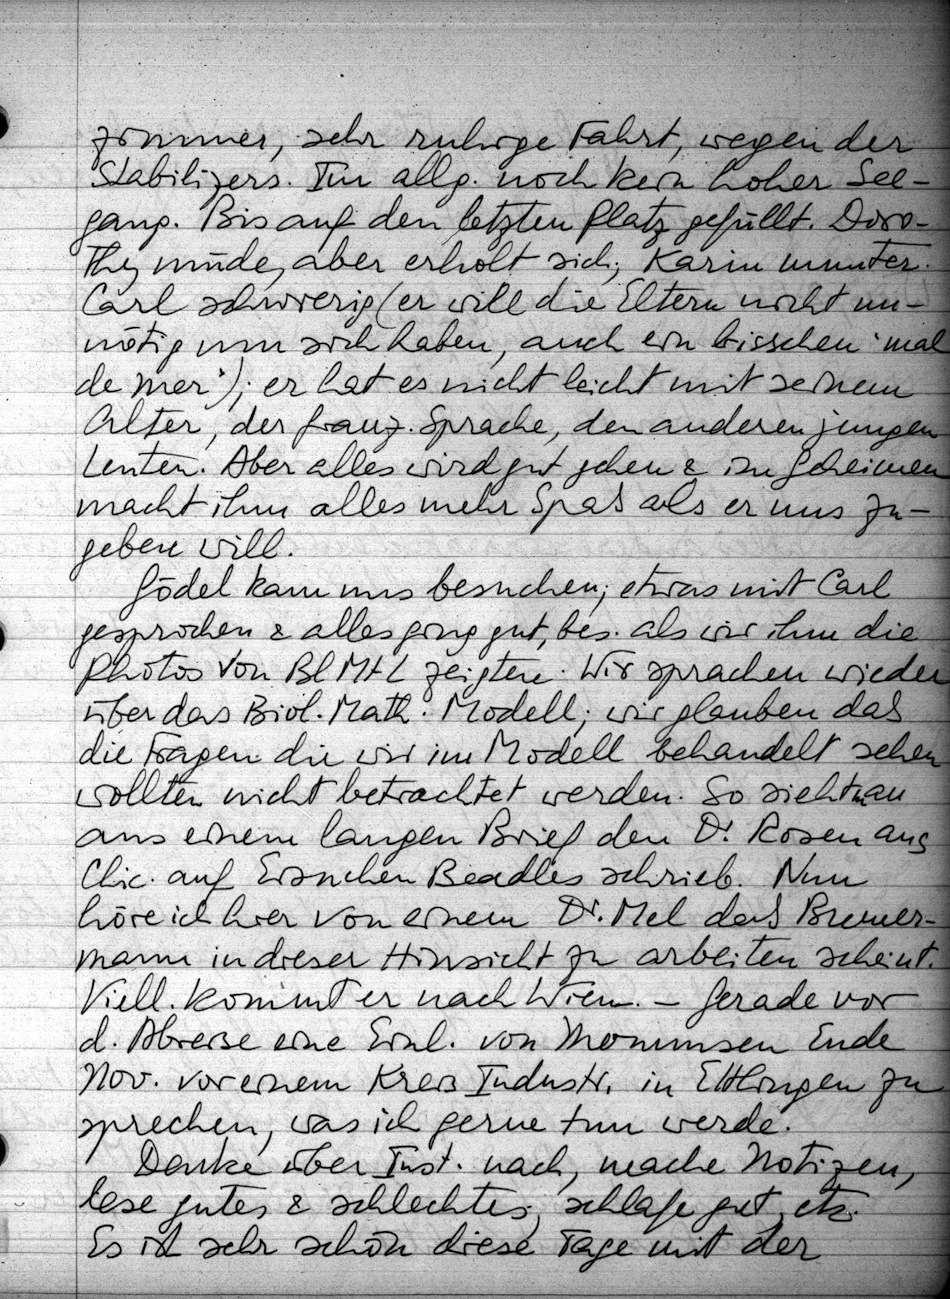 zimmer, sehr ruhige Fahrt, wegen der
Stabilizers. Im allg. noch kein hoher See-
gang. Bis auf den letzten Platz gefüllt. Doro-
thy müde, aber erholt sich; Karin munter.
Carl schwierig (er will die Eltern nicht un-
nötig um sich haben, auch ein bisschen 'mal
de mer'); er hat es nicht leicht mit seinem
Alter, der franz. Sprache, den anderen jungen
Leuten. Aber alles wird gut gehen & im Geheimen
macht ihm alles mehr Spaß als er uns zu-
geben will.
Gödel kam uns besuchen; etwas mit Carl
gesprochen & alles ging gut, bes. als wir ihm die
Photos von BLM+L zeigten. Wir sprachen wieder
über das Biol. Math. Modell; wir glauben daß
die Fragen die wir im Modell behandelt sehen
wollten nicht betrachtet werden. So sieht man
aus einem langen Brief den Dr. Rosen aus
Chic. auf Ersuchen Beadles schrieb. Nun
höre ich hier von einem Dr. Mel daß Bremer-
mann in dieser Hinsicht zu arbeiten scheint.
Viell. kommt er nach Wien. – Gerade vor
d. Abreise eine Einl. von Mommsen Ende
Nov. vor einem Kreis Industr. in Ettlingen zu
sprechen, was ich gerne tun werde.
Denke über Inst. nach, mache Notizen,
lese gutes & schlechtes, schlafe gut, etc.
Es ist sehr schön diese Tage mit der